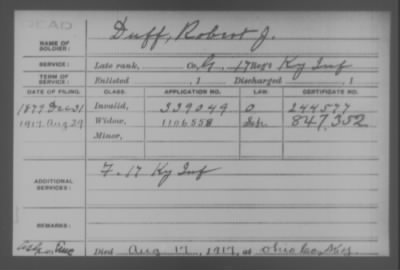 DEAD
NAME OF SOLDIER: Duff, Robert J.
SERVICE: Late rank, Co. G, 17 Reg't Ky Inf
TERM OF SERVICE: Enlisted , 1 Discharged , 1
DATE OF FILING. CLASS. APPLICATION NO. LAW. CERTIFICATE NO.
1879 Dec 31 Invalid, 339049 O 244577
1917 Aug 29 Widow, 1106558 847,352
Minor,
ADDITIONAL SERVICES: F. 17 Ky Inf
REMARKS:
Died Aug 17, 1917, at Ohio Co., Ky.